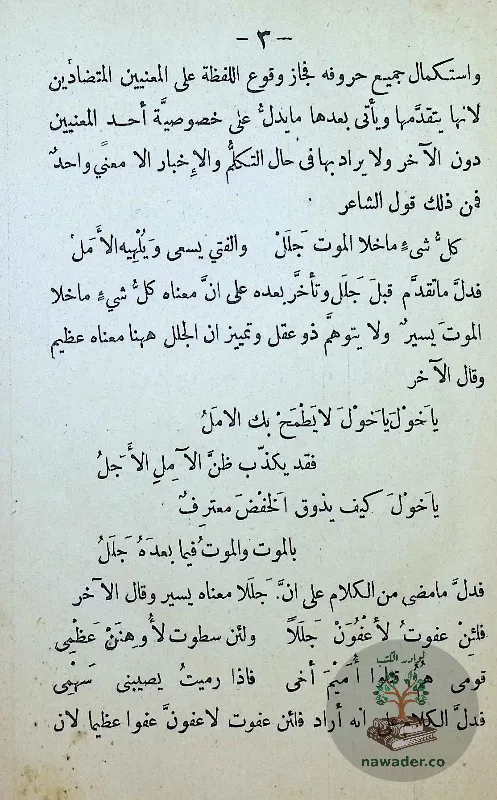 -٣-
واستكمال جميع حروفه فجاز وقوع اللفظة على المعنيين المتضادّين
لانها يتقدَّمها ويأتى بعدها مايدلُّ على خصوصيَّة أحد المعنيين
دون الآخر ولا يراد بها فى حال التكلُّم والإخبار الا معنًي واحدٌ
فمن ذلك قول الشاعر
كلُّ شىءٍ ماخلا الموت جَلَلْ والفتي يسعى ويُلْهِيه الأَمَلْ
فدلَّ ماتقدَّم قبلَ جَلَل وتأخَّر بعده على انَّ معناه كلُّ شيءٍ ماخلا
الموتَ يسيرٌ ولا يتوهَّم ذو عقل وتمييز ان الجلل ههنا معناه عظيم
وقال الآخر
ياخَوْلَ ياخَوْلَ لا يَطْمَحْ بك الامَلُ
فقد يكذّب ظنَّ الآمِلِ الأَجَلُ
ياخَوْلَ كيف يذوق الخَفْضَ معترِفٌ
بالموت والموتُ فيما بعدَهُ جَلَلُ
فدلَّ مامضى من الكلام على انَّ جَلَلا معناه يسير وقال الآخر
فلئِنْ عفوتُ لأَعْفُوَنْ جَلَلاً ولئن سطوت لأُوهِنَنْ عَظْمِى
قومى هُمُ قتلوا أُمَيْمَ أخى فاذا رميتُ يصيبنى سَهْمِى
فدلَّ الكلام على انه أراد فلئن عفوت لاعفونَّ عفوا عظيما لان
نوادر الكتب
nawader.co